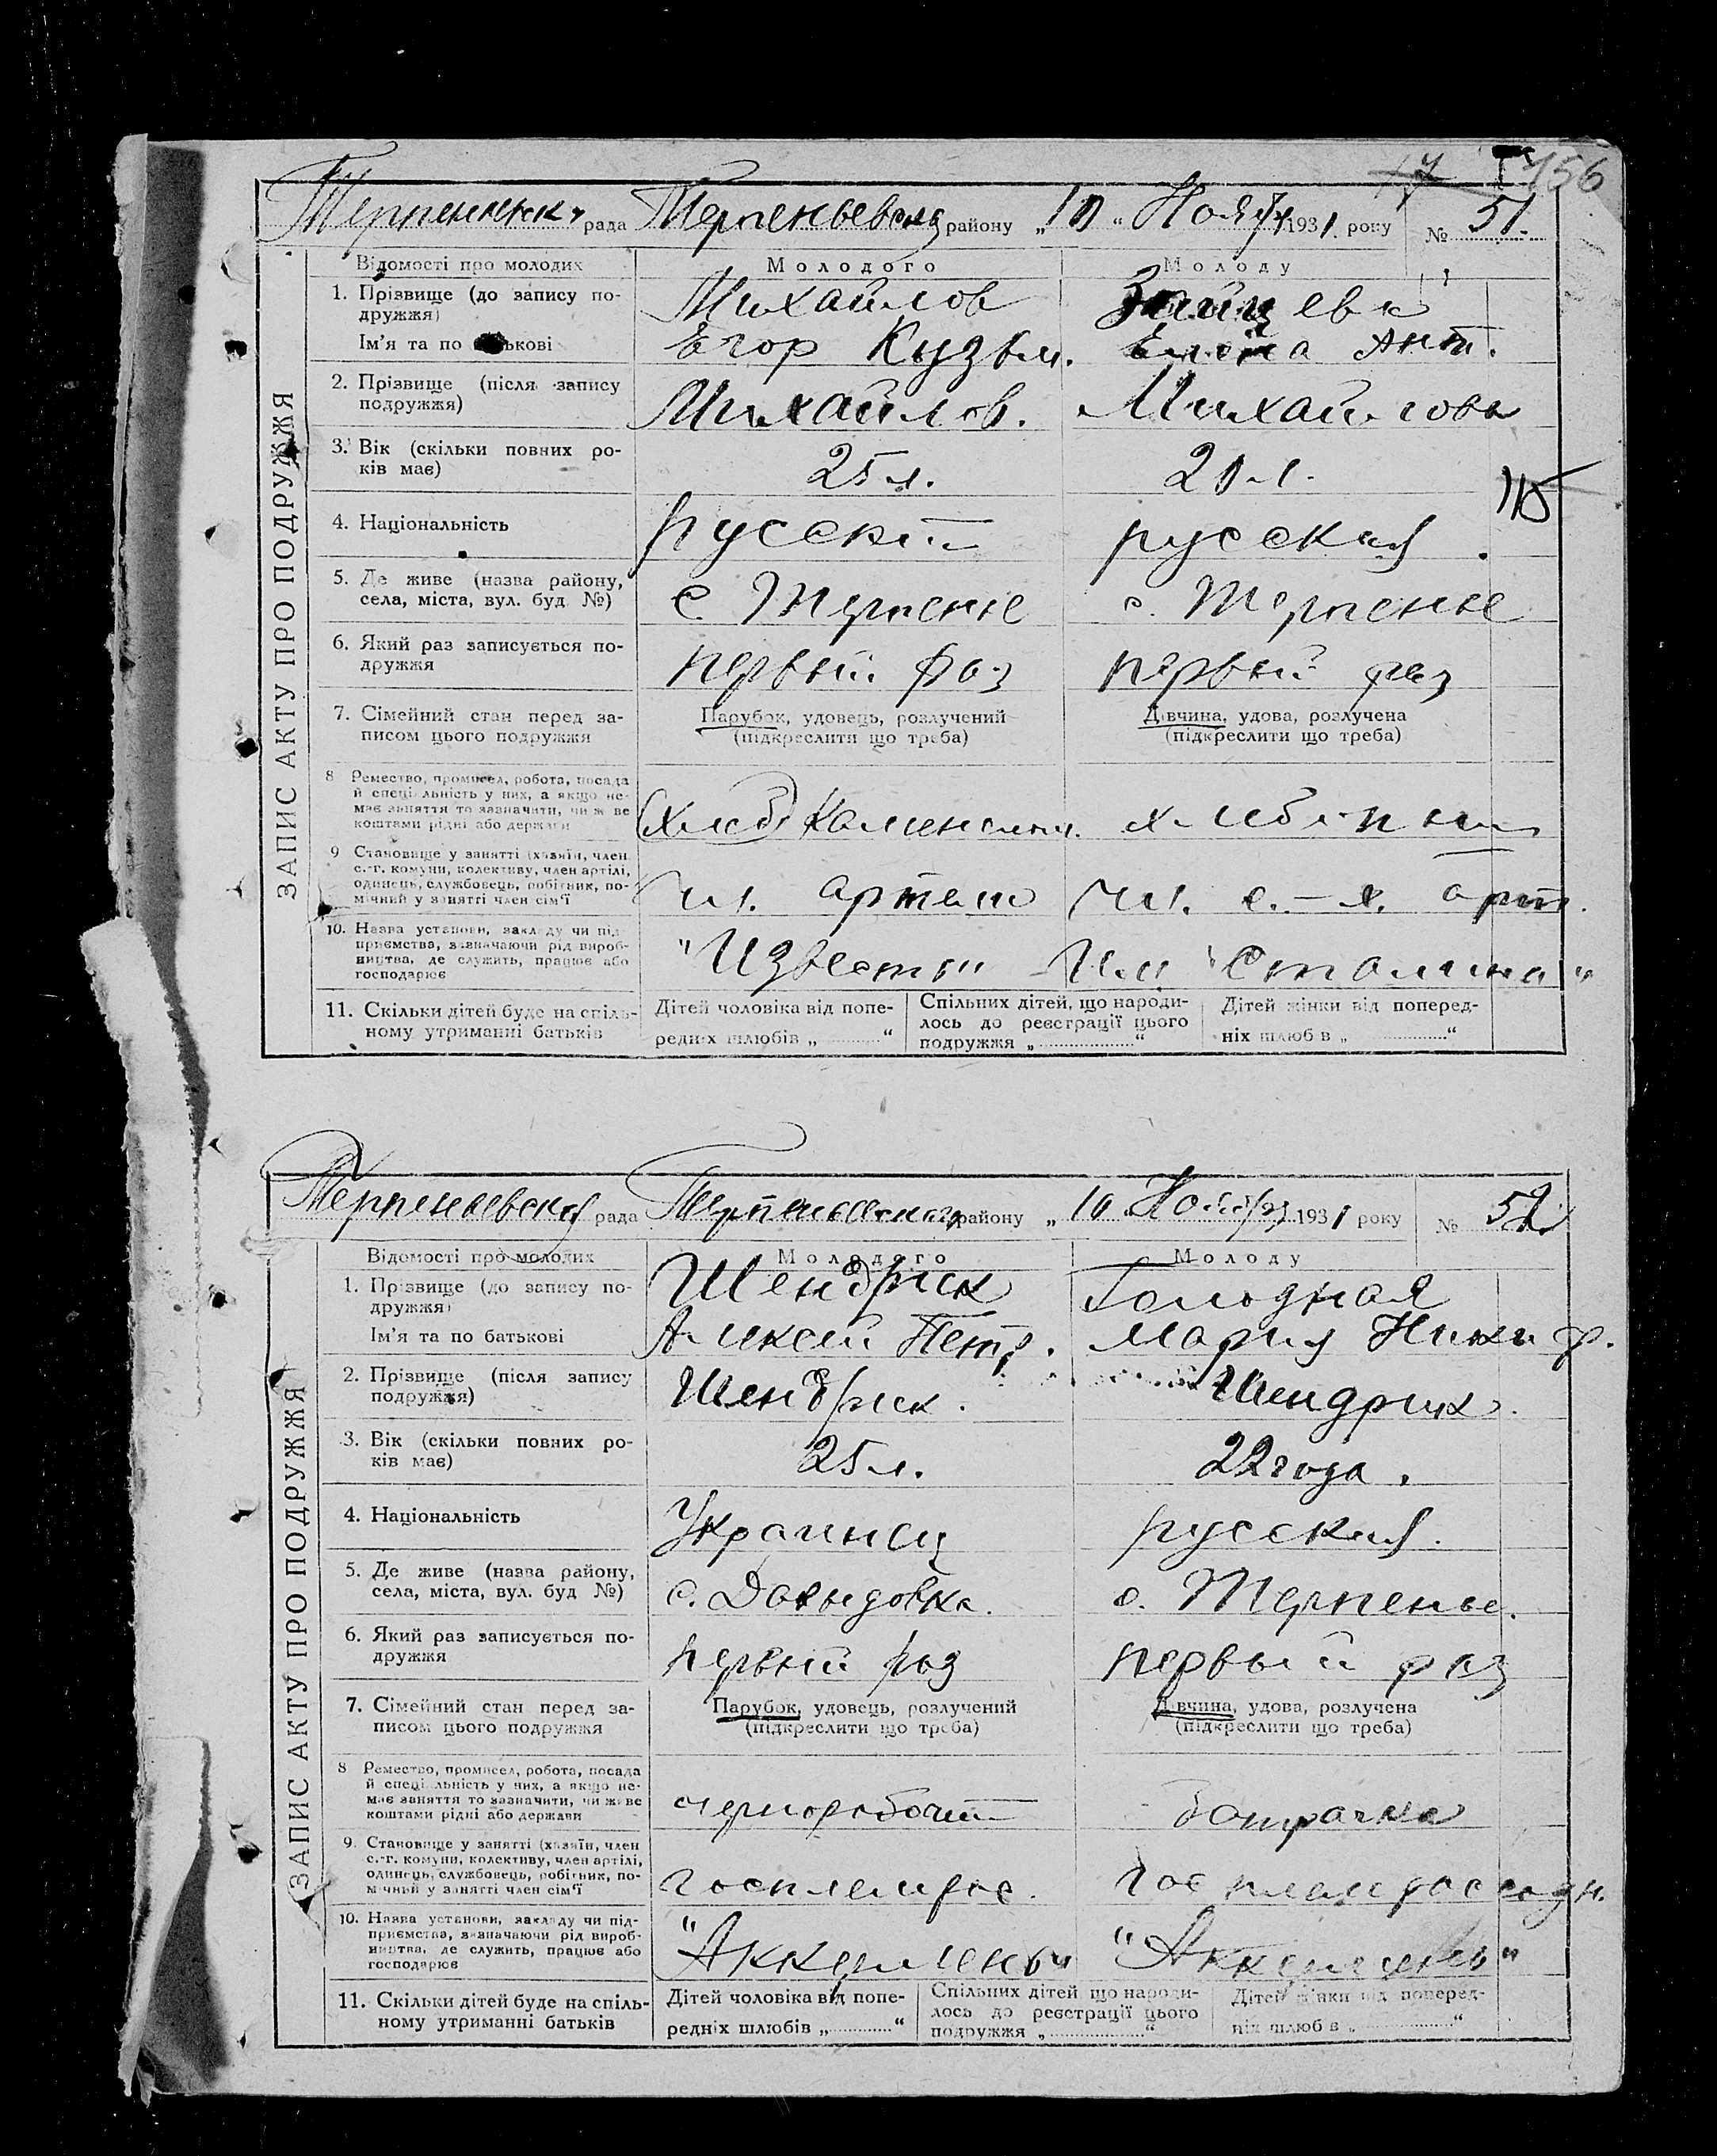 156
Терпеньевск. рада Терпеньевского району „10“ Ноября 1931 року № 51.
ЗАПИС АКТУ ПРО ПОДРУЖЖЯ
Відомості про молодих Молодого Молоду
1. Прізвище (до запису по- Михайлов Зайцева
дружжя)
Ім'я та по батькові Егор Кузьм. Елена Ант.
2. Прізвище (після запису Михайлов. Михайлова
подружжя)
3. Вік (скільки повних ро- 25 л. 20 л.
ків має)
115
4. Національність русский русская
5. Де живе (назва району, с. Терпенье с. Терпенье
села, міста, вул. буд №)
6. Який раз записується по- первый раз первый раз
дружжя
7. Сімейний стан перед за- Парубок, удовець, розлучений Дівчина, удова, розлучена
писом цього подружжя (підкреслити що треба) (підкреслити що треба)
8 Ремество, промисел, робота, посада
й спеціяльність у них, а якщо не-
має заняття то зазначити, чи живе
коштами рідні або держави
9 Становище у занятті (хазяїн, член
с.-г. комуни, колективу, член артілі, чл. артели чл. с.-х. арт.
одинець, службовець, робітник, по-
мічний у занятті член сім'ї
10. Назва установи, закладу чи під-
приємства, зазначаючи рід вироб- "Известия" Им "Сталина"
ництва, де служить, працює або
господарює
11. Скільки дітей буде на спіль- Дітей чоловіка від попе- Спільних дітей, що народи- Дітей жінки від поперед-
ному утриманні батьків редніх шлюбів „ “ лось до реєстрації цього ніх шлюбів „ “
подружжя „ “
Терпеньевская рада Терпеньевского району „10“ Ноября 1931 року № 52
ЗАПИС АКТУ ПРО ПОДРУЖЖЯ
Відомості про молодих Молодого Молоду
1. Прізвище (до запису по- Шендрик Голодная
дружжя)
Ім'я та по батькові Алексей Петр. Мария Никиф.
2. Прізвище (після запису Шендрик. Шендрик.
подружжя)
3. Вік (скільки повних ро- 25 л. 22 года.
ків має)
4. Національність Украинец русская.
5. Де живе (назва району, с. Давыдовка. с. Терпенье.
села, міста, вул. буд №)
6. Який раз записується по- первый раз первый раз
дружжя
7. Сімейний стан перед за- Парубок, удовець, розлучений Дівчина, удова, розлучена
писом цього подружжя (підкреслити що треба) (підкреслити що треба)
8 Ремество, промисел, робота, посада
й спеціяльність у них, а якщо не- чернорабочий батрачка
має заняття то зазначити, чи живе
коштами рідні або держави
9. Становище у занятті (хазяїн, член
с.-г. комуни, колективу, член артілі,
одинець, службовець, робітник, по-
мічный у занятті член сім'ї
10. Назва установи, закладу чи під-
приємства, зазначаючи рід вироб- "Аккермень" "Аккермень"
ництва, де служить, працює або
господарює
11. Скільки дітей буде на спіль- Дітей чоловіка від попе- Спільних дітей що народи- Дітей жінки від поперед-
ному утриманні батьків редніх шлюбів „ “ лось до реєстрації цього ніх шлюбів „ “
подружжя „ “